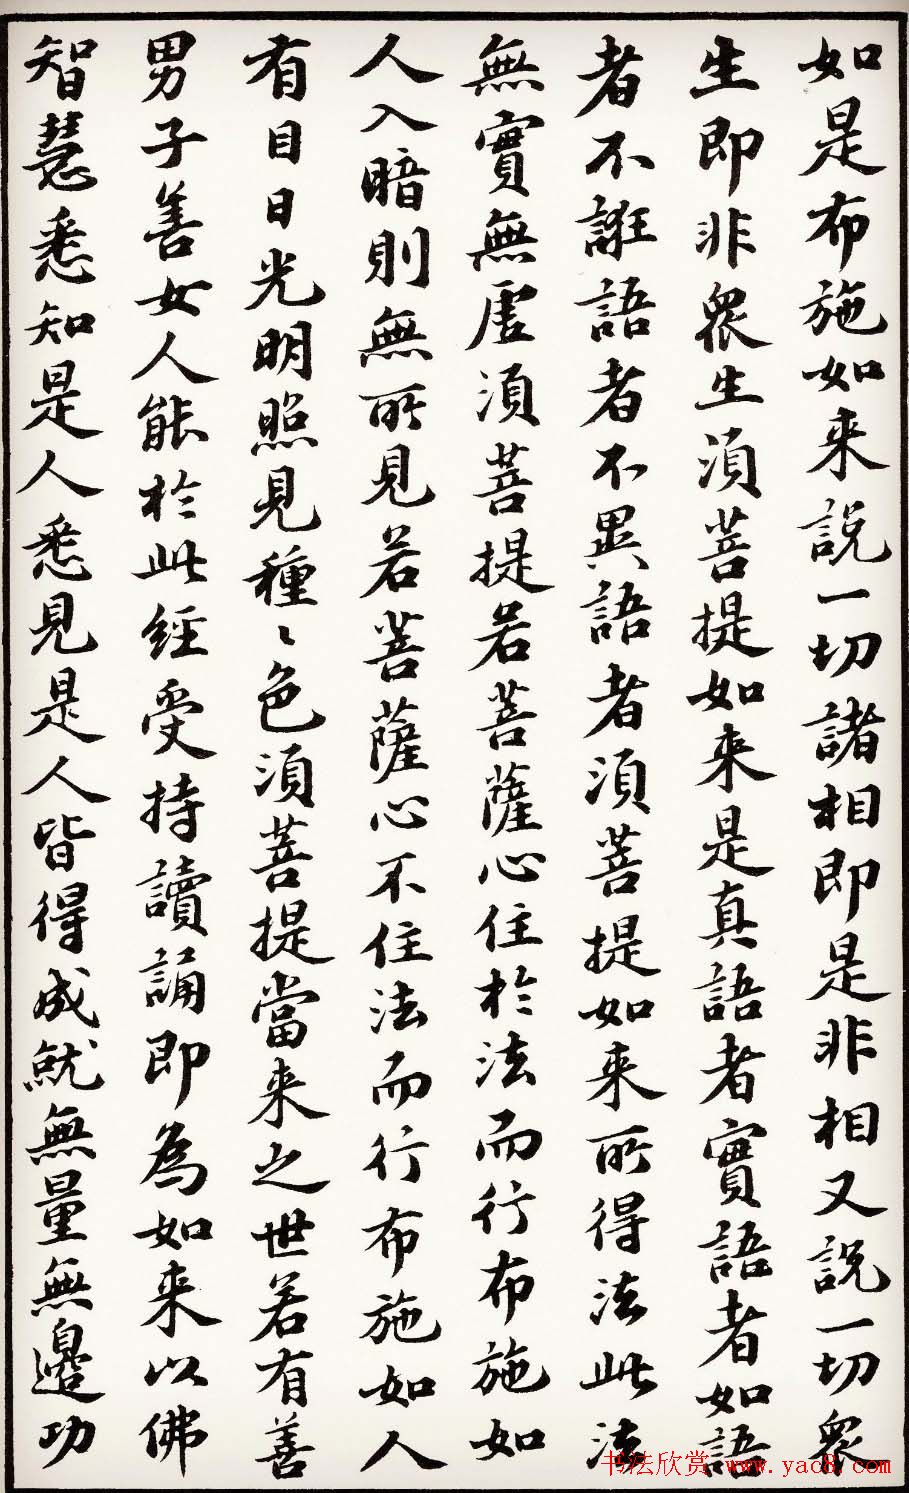 如是布施如来説一切諸相即是非相又説一切衆
生即非衆生須菩提如来是真語者實語者如語
者不誑語者不異語者須菩提如来所得法此法
無實無虛須菩提若菩薩心住於法而行布施如
人入暗則無所見若菩薩心不住法而行布施如人
有目日光明照見種〻色須菩提當来之世若有善
男子善女人能於此經受持讀誦即為如来以佛
智慧悉知是人悉見是人皆得成就無量無邊功
书法欣赏 www.yac8.com